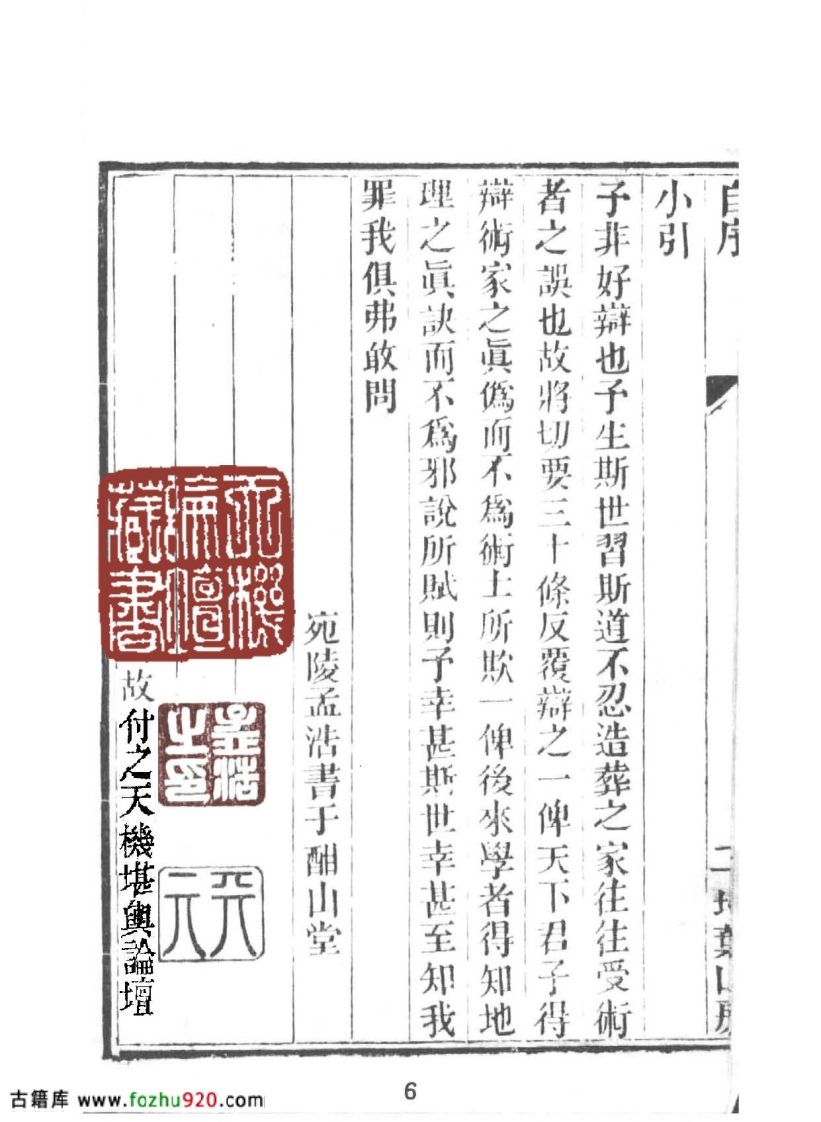 自序
小引
予非好辯也予生斯世習斯道不忍造葬之家往往受術
者之誤也故將切要三十條反覆辯之一俾天下君子得
辯術家之眞僞而不爲術士所欺一俾後來學者得知地
理之眞訣而不爲邪說所賊則予幸甚斯世幸甚至知我
罪我俱弗敢問
宛陵孟浩書于酣山堂
天機
論壇
藏書
孟浩
之印
天
故付之天機堪輿論壇
6
古籍库 www.fozhu920.com